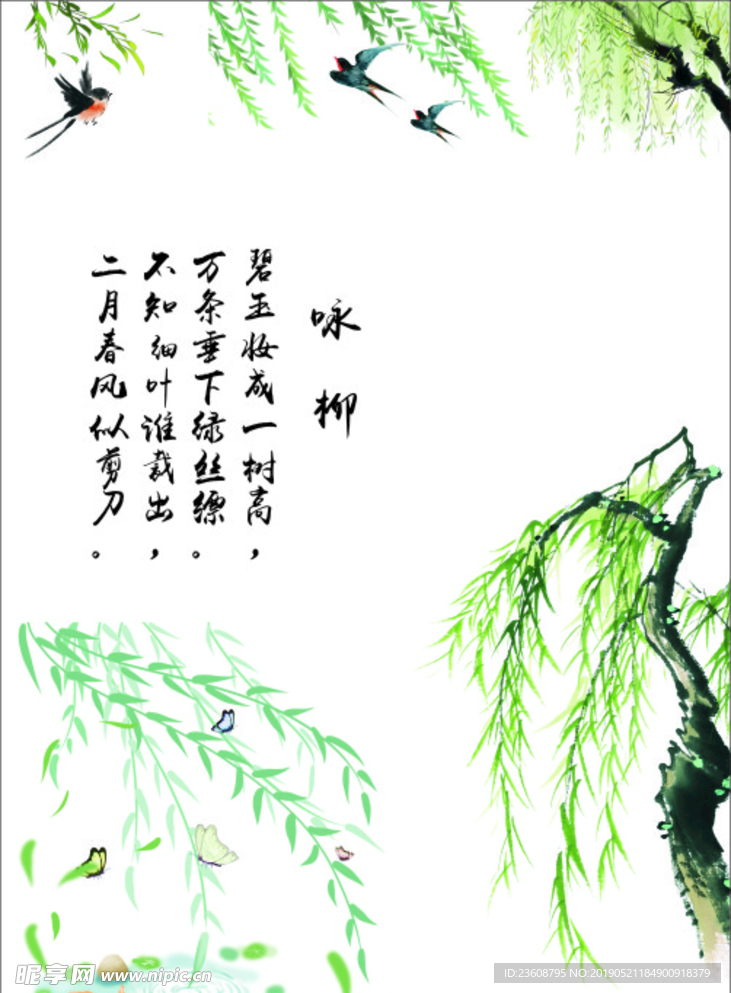 咏柳
碧玉妆成一树高，
万条垂下绿丝缥。
不知细叶谁裁出，
二月春风似剪刀。
昵享网 www.nipic.cn
ID:23608795 NO:20190521184900918379